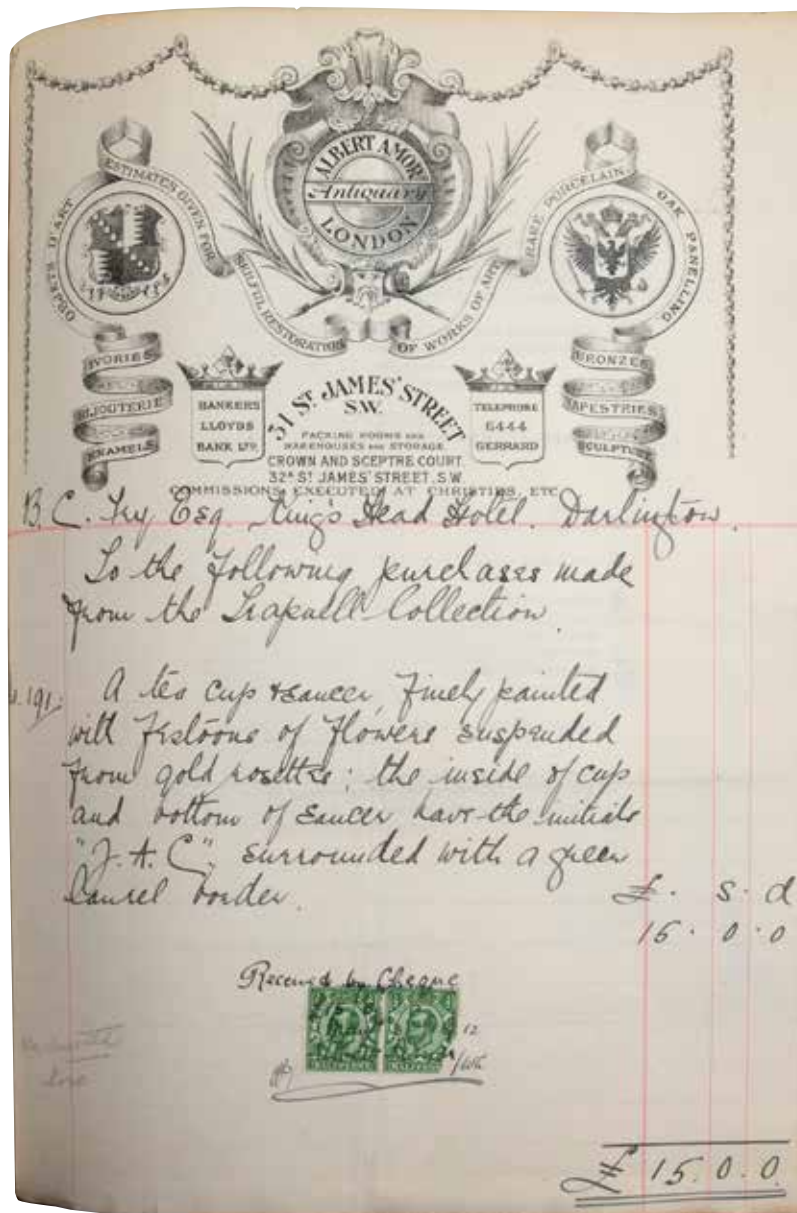 ALBERT AMOR
Antiquary
LONDON
OBJETS D'ART
ESTIMATES GIVEN FOR
SKILFUL RESTORATION
OF WORKS OF ART
RARE PORCELAIN
OAK PANELLING
IVORIES
BIJOUTERIE
ENAMELS
BRONZES
TAPESTRIES
SCULPTURE
BANKERS
LLOYDS
BANK LTD.
31 ST. JAMES' STREET
S.W.
PACKING ROOMS AND
WAREHOUSES FOR STORAGE
CROWN AND SCEPTRE COURT
32A ST JAMES' STREET, S.W
TELEPHONE
6444
GERRARD
COMMISSIONS EXECUTED AT CHRISTIES, ETC
B. C. Fry Esq King's Head Hotel. Darlington.
To the following purchases made
from the Trapnell Collection.
191.
A tea cup & saucer, finely painted
with festoons of flowers suspended
from gold rosettes; the inside of cup
and bottom of saucer have the initials
"J. A. C", surrounded with a green
laurel border.
£. s. d
15. 0. 0
Received by Cheque
12
HALFPENNY
HALFPENNY
£ 15. 0. 0.